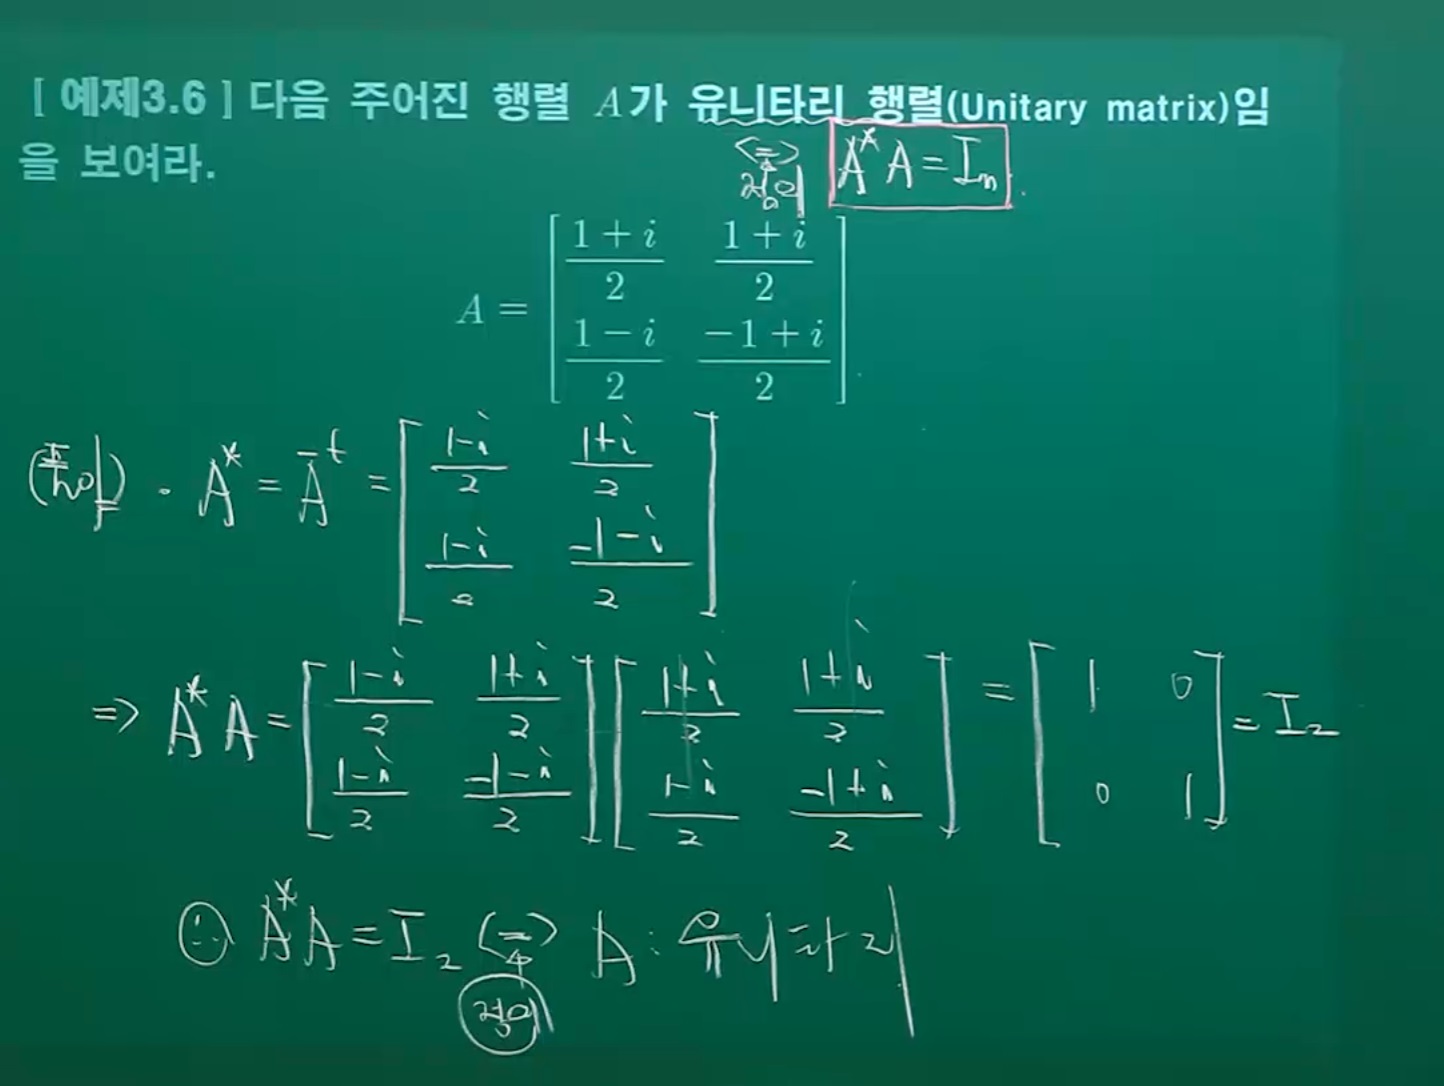 [ 예제3.6 ] 다음 주어진 행렬 A가 유니타리 행렬(Unitary matrix)임
을 보여라.
<=> 정의 A* A = Iₙ
A = [ (1+i)/2 (1+i)/2
(1-i)/2 (-1+i)/2 ]
(풀이) · A* = Āᵗ = [ (1-i)/2 (1+i)/2
(1-i)/2 (-1-i)/2 ]
=> A* A = [ (1-i)/2 (1+i)/2 ] [ (1+i)/2 (1+i)/2 ] = [ 1 0 ] = I₂
[ (1-i)/2 (-1-i)/2 ] [ (1-i)/2 (-1+i)/2 ] [ 0 1 ]
∴ A* A = I₂ <=> A : 유니타리
정의